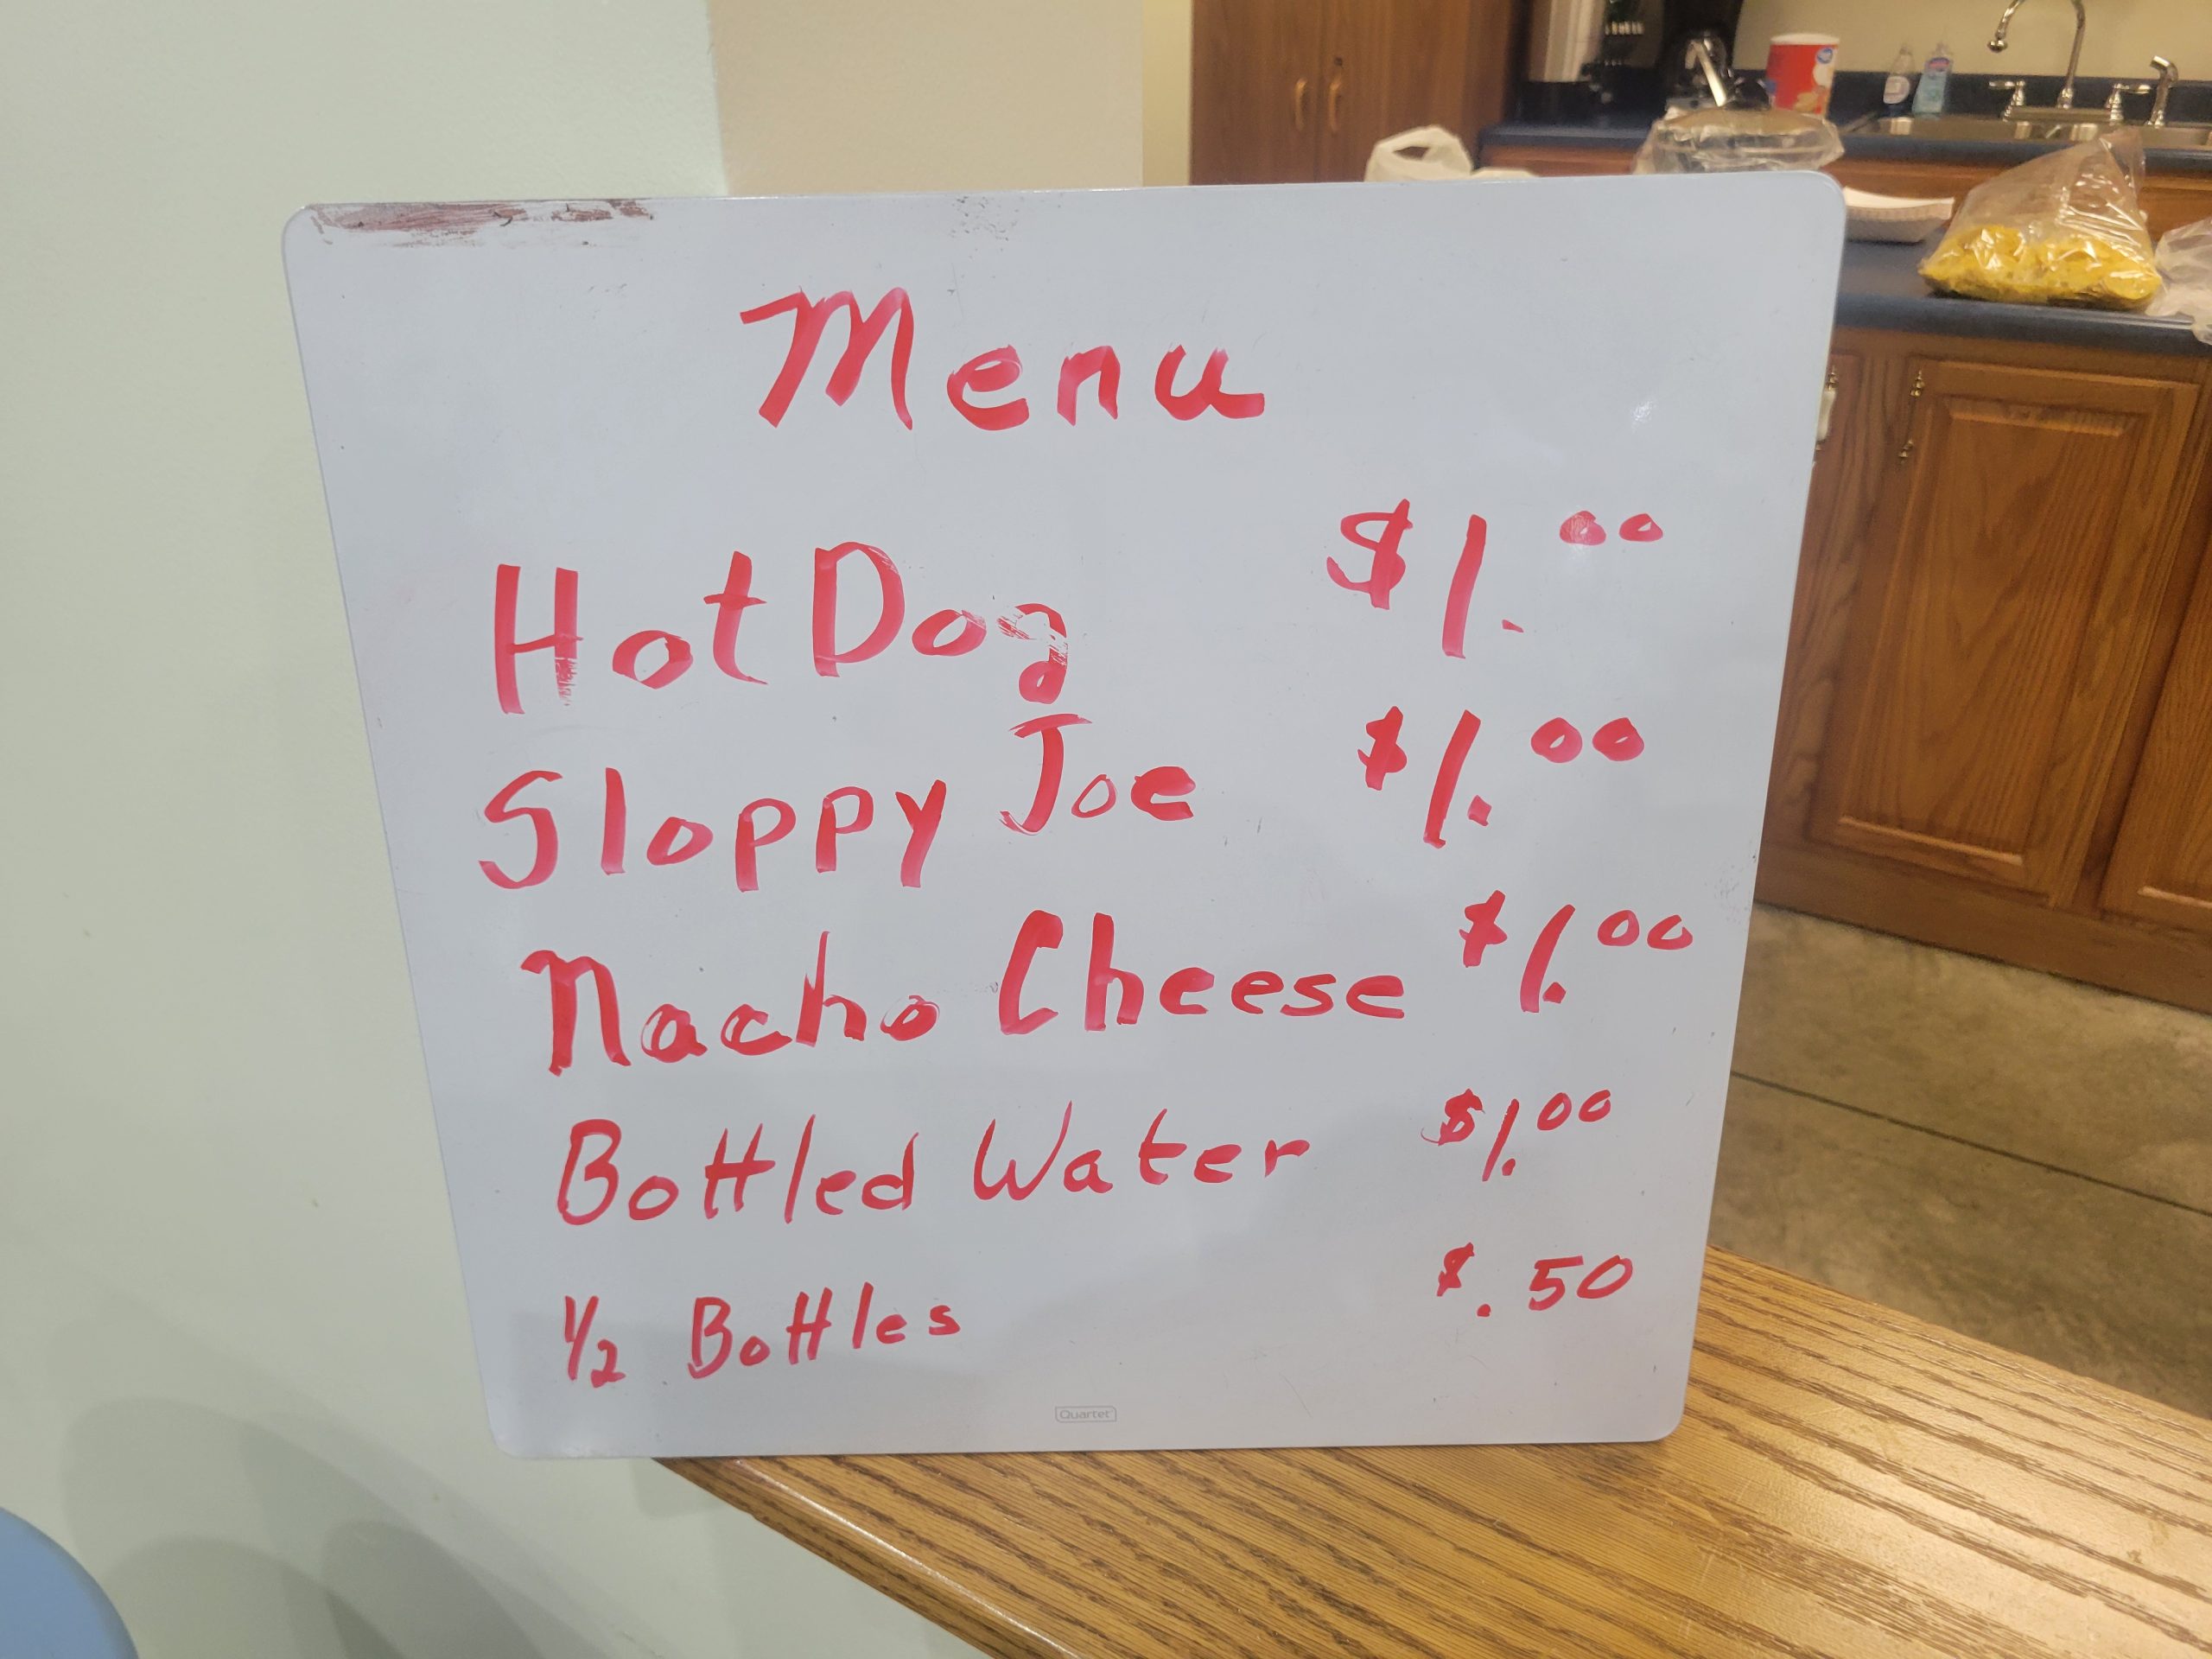 Menu
Hot Dog $1.00
Sloppy Joe $1.00
Nacho Cheese $1.00
Bottled Water $1.00
1/2 Bottles $.50
Quartet